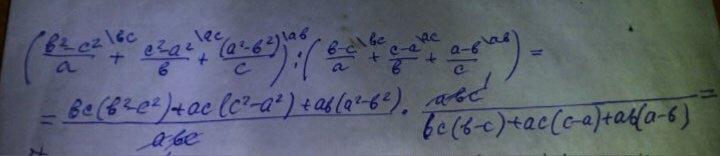 ( (b²-c²)/a \bc + (c²-a²)/b \ac + (a²-b²)/c \ab ) : ( (b-c)/a \bc + (c-a)/b \ac + (a-b)/c \ab ) =
= (bc(b²-c²)+ac(c²-a²)+ab(a²-b²))/abc · abc/(bc(b-c)+ac(c-a)+ab(a-b)) =